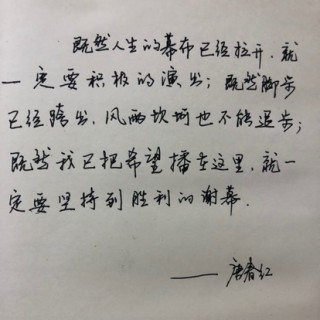 既然人生的幕布已经拉开，就
一定要积极的演出；既然脚步
已经跨出，风雨坎坷也不能退步；
既然我已把希望播在这里，就一
定要坚持到胜利的谢幕．
——唐春红